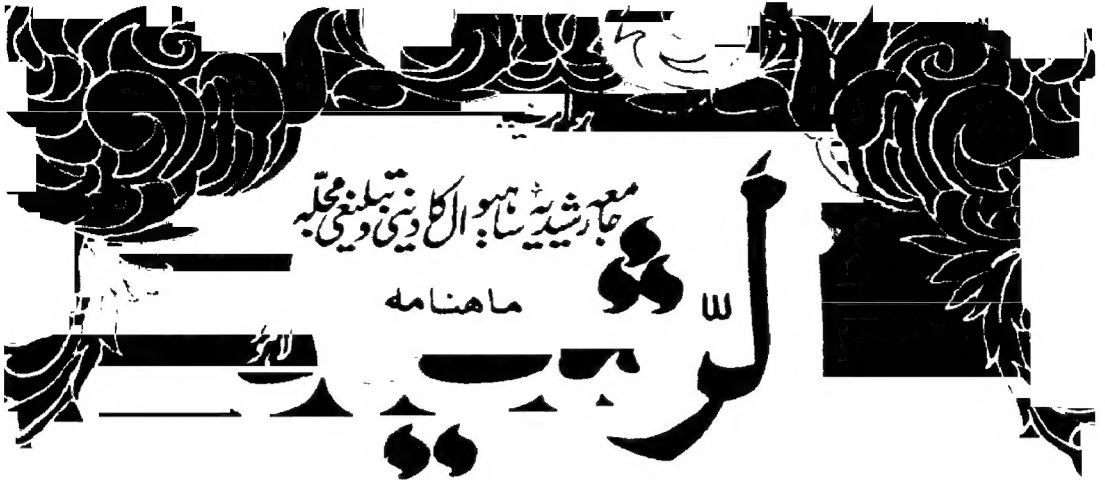 جامعہ رشیدیہ ساہیوال کا دینی و تبلیغی مجلہ
ماهنامه
الرّشید
لاہور